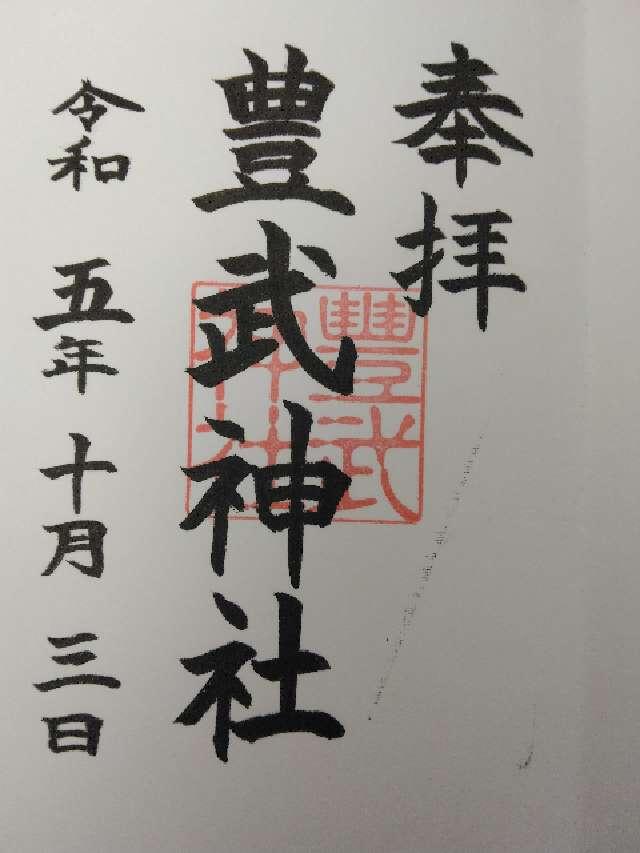 奉拝
豊武神社
豐武
神社
令和 五年 十月 三日